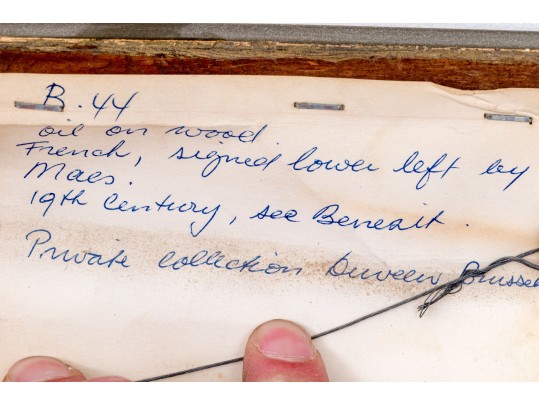 B.44
oil on wood.
French, signed lower left by
Maes.
19th Century, see Benezit.
Private collection Duveen Brussel